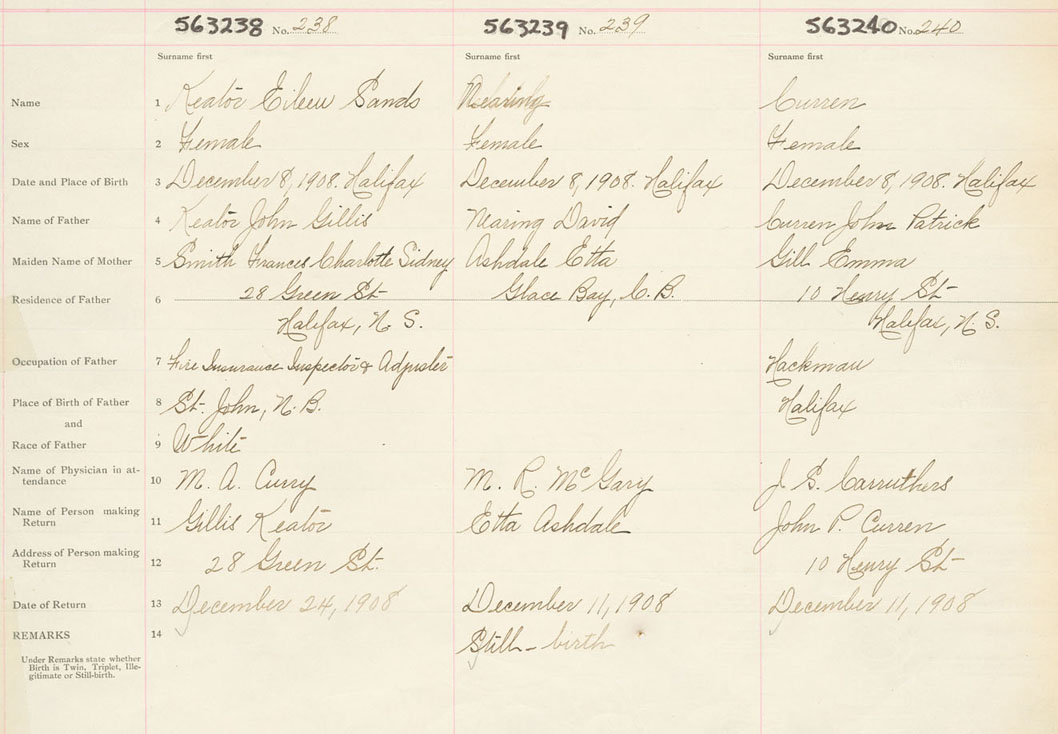 563238 No. 238 563239 No. 239 563240 No. 240
Surname first Surname first Surname first
Name 1 Keator Eileen Sands Nearing Curren
Sex 2 Female Female Female
Date and Place of Birth 3 December 8, 1908. Halifax December 8, 1908. Halifax December 8, 1908. Halifax
Name of Father 4 Keator John Gillis Nearing David Curren John Patrick
Maiden Name of Mother 5 Smith Frances Charlotte Sidney Ashdale Etta Gill Emma
Residence of Father 6 28 Green St. Glace Bay, C.B. 10 Henry St
Halifax, N.S. Halifax, N.S.
Occupation of Father 7 Fire Insurance Inspector & Adjuster Hackman
Place of Birth of Father 8 St. John, N.B. Halifax
and
Race of Father 9 White
Name of Physician in at-
tendance 10 M. A. Curry M. R. McGary J. S. Carruthers
Name of Person making
Return 11 Gillis Keator Etta Ashdale John P. Curren
Address of Person making
Return 12 28 Green St. 10 Henry St
Date of Return 13 December 24, 1908 December 11, 1908 December 11, 1908
REMARKS 14 Still-birth
Under Remarks state whether
Birth is Twin, Triplet, Ille-
gitimate or Still-birth.